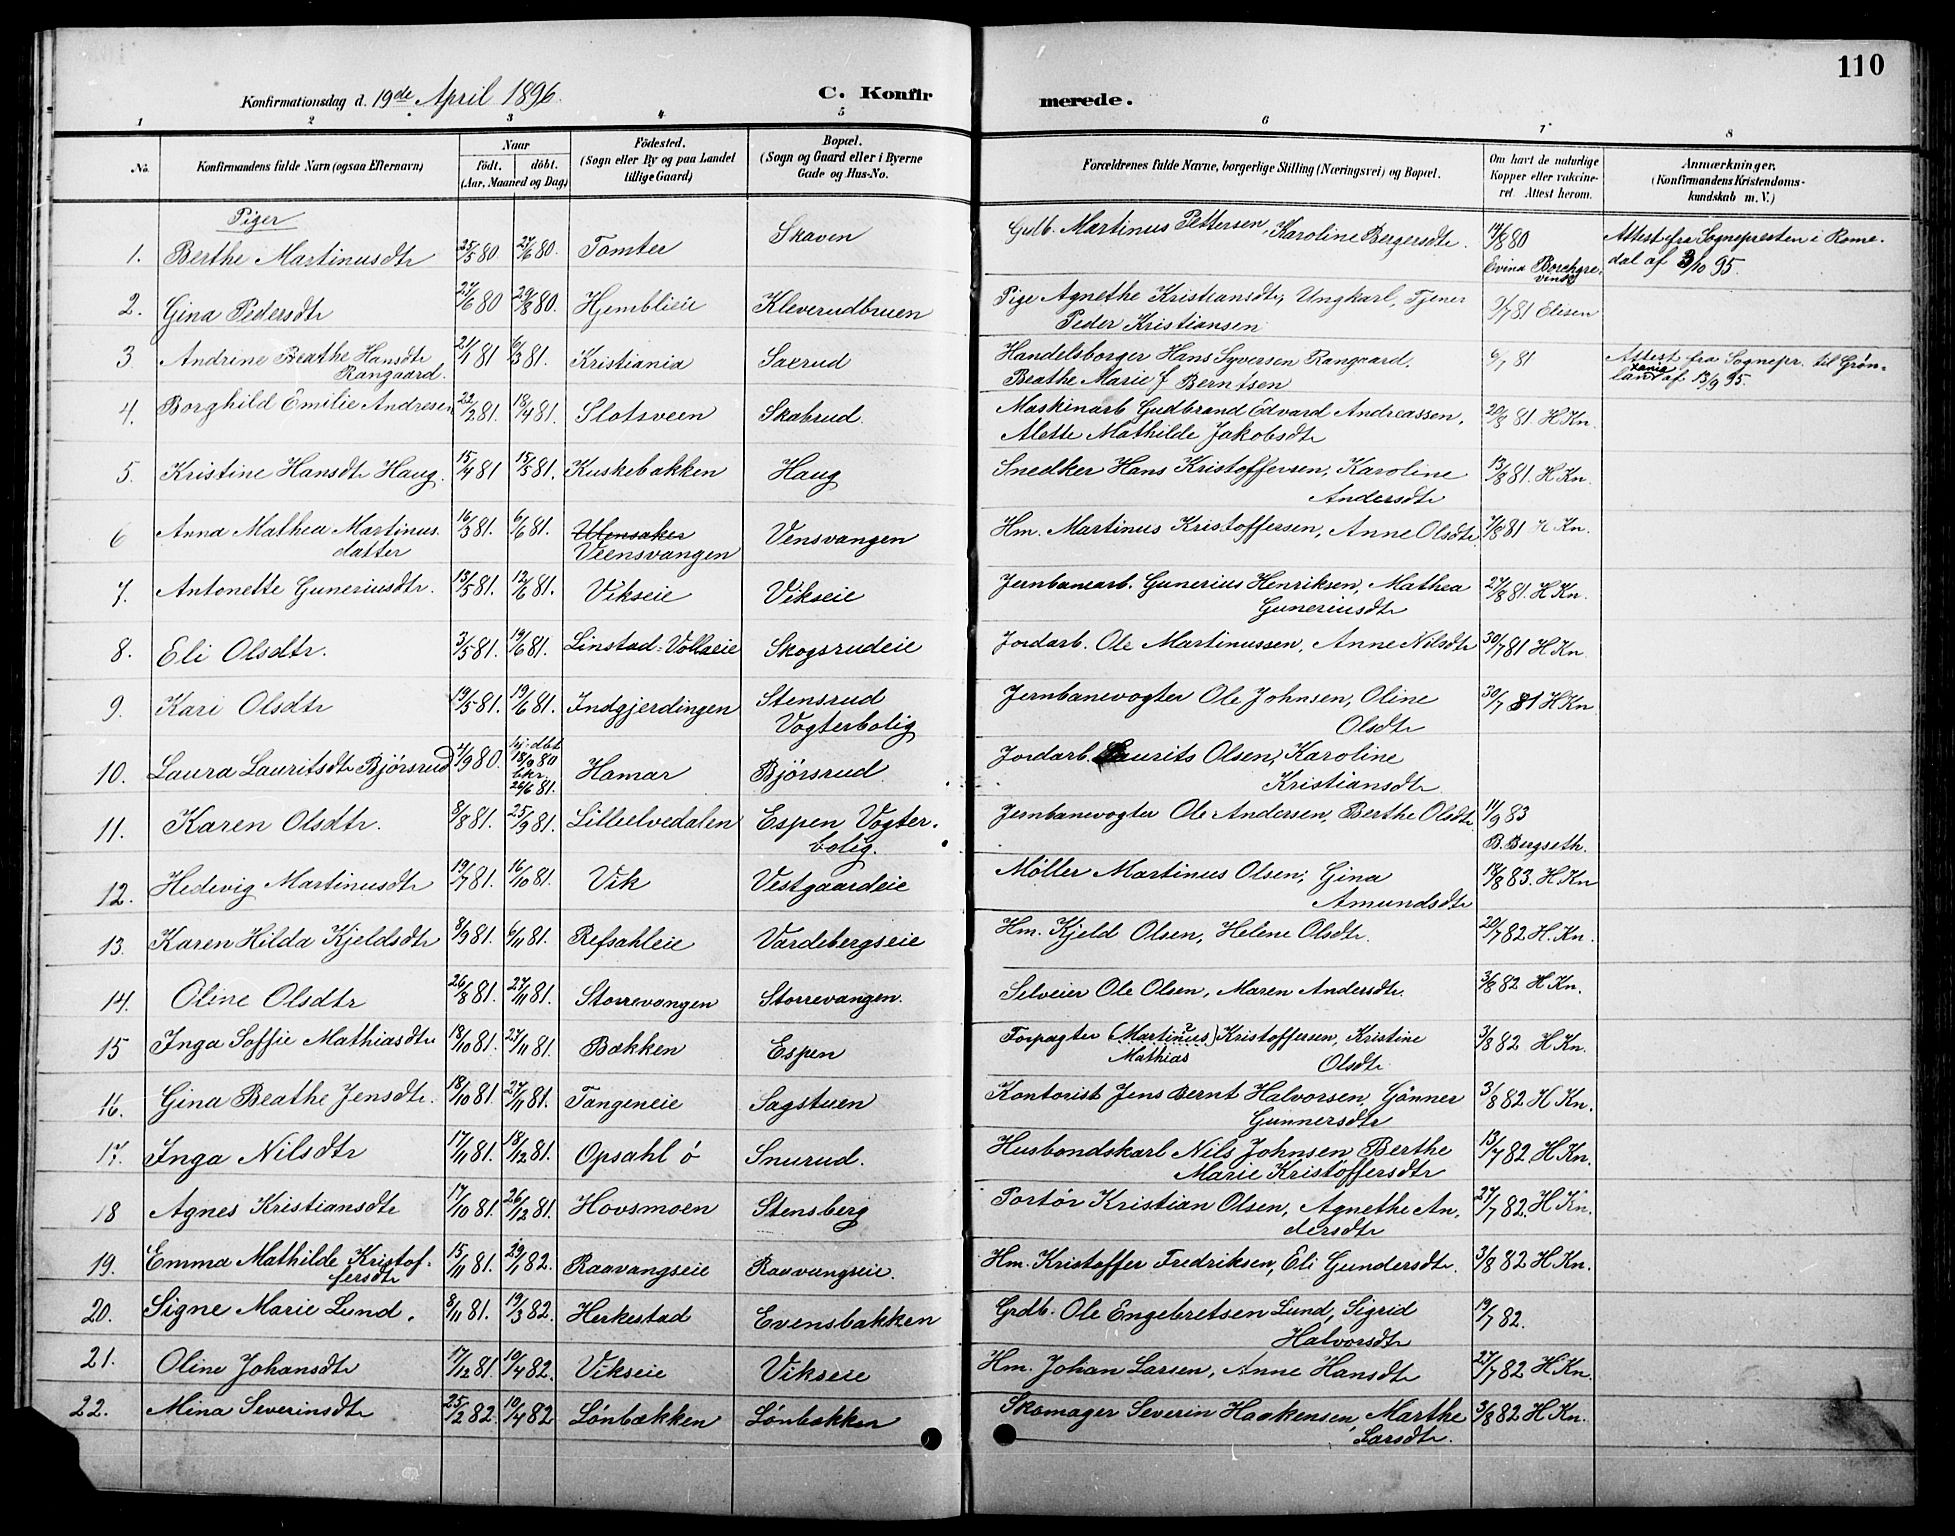 110
Konfirmationsdag d. 19de April 1896. C. Konfirmerede.
1 2 3 4 5 6 7 8
No. Konfirmandens fulde Navn (ogsaa Efternavn) Naar født. døbt. (Aar, Maaned og Dag) Fødested. (Sogn eller By og paa Landet tillige Gaard) Bopæl. (Sogn og Gaard eller i Byerne Gade og Hus-No. Forældrenes fulde Navne, borgerlige Stilling (Næringsvei) og Bopæl. Om havt de naturlige Kopper eller vakcineret. Attest herom. Anmærkninger. (Konfirmandens Kristendomskundskab m. V.)
Piger
1. Berthe Martinusdtr 25/5 80 27/6 80. Tomter Skaven Gdb. Martinus Pettersen, Karoline Bergersdtr. 19/8 80 Evind Borchgrevink Attest fra Sognepresten i Romedal af 3/10 95.
2. Gina Pedersdtr 27/6 80 29/8 80. Hjemblieie Kleverudbruen Pige Agnethe Kristiansdtr, Ungkarl, Tjener Peder Kristiansen 9/7 81 Elisen
3 Andrine Beathe Hansdtr Rangaard. 21/1 81 6/3 81. Kristiania Saxrud Handelsborger Hans Syversen Rangaard, Beathe Marie f Berntsen 6/7 81 Attest fra Sognepr. til Grønland af 13/9 95.
4. Borghild Emilie Andresen 22/2 81. 18/4 81. Slotsveen Skabrud. Maskinarb Gudbrand Edvard Andreassen, Alette Mathilde Jakobsdtr 20/8 81. H Kn.
5. Kristine Hansdtr Haug. 15/4 81 15/5 81. Kuskebakken Haug Snedker Hans Kristoffersen, Karoline Andersdtr 13/8 81. H Kn.
6 Anna Mathea Martinusdatter 16/3 81. 6/6 81. Ulensaker Veensvangen Vensvangen Hm. Martinus Kristoffersen, Anne Olsdtr 7/8 81 H Kn.
7. Antonette Guneriusdtr. 13/5 81. 12/6 81. Vikseie Vikseie Jernbanearb. Gunerius Henriksen, Mathea Guneriusdtr 27/8 81. H Kn.
8. Eli Olsdtr. 3/5 81. 19/6 81. Linstad-Vollaeie Skogsrudeie Jordarb. Ole Martinussen, Anne Nilsdtr 30/7 81 H Kn
9. Kari Olsdtr 19/5 81. 19/6 81. Indgjerdingen Stensrud Vogterbolig Jernbanevogter Ole Johnsen, Oline Olsdtr 30/7 81 H Kn
10. Laura Lauritsdtr Bjørsrud 4/9 80. hj: dbt 18/9 80 bkr. 26/6 81. Hamar Bjørsrud Jordarb. Laurits Olsen, Karoline Kristiansdtr.
11. Karen Olsdtr. 8/8 81. 25/9 81. Lilleelvedalen Espen Vogterbolig. Jernbanevogter Ole Andersen, Berthe Olsdtr. 11/9 83 B. Bergseth.
12. Hedevig Martinusdtr 19/7 81. 16/10 81. Vik Vestgaardeie Møller Martinus Olsen, Gina Amundsdtr 18/8 83. H Kn
13. Karen Hilda Kjeldsdtr 8/9 81. 6/11 81. Refsahleie Vardebergseie Hm. Kjeld Olsen, Helene Olsdtr. 20/7 82 H. Kn.
14. Oline Olsdtr 26/8 81. 27/11 81. Storrevangen Storrevangen. Selveier Ole Olsen, Maren Andersdtr. 3/8 82 H Kn.
15 Inga Soffie Mathiasdtr 18/10 81. 27/11 81. Bakken Espen Forpagter (Martinus?) Mathias Kristoffersen, Kristine Olsdtr 3/8 82 H Kn.
16. Gina Beathe Jensdtr. 18/10 81. 27/11 81. Tangeneie Sagstuen Kontorist Jens Bernt Halvorsen, Gønner Gunnersdtr 3/8 82 H Kn.
17. Inga Nilsdtr 17/11 81. 18/12 81. Opsahl ø Snurud. Husbondskarl Nils Johnsen, Berthe Marie Kristoffersdtr 13/7 82. H Kn.
18 Agnes Kristiansdtr 17/10 81. 26/12 81. Hovsmoen Stensberg Portør Kristian Olsen, Agnethe Andersdtr 27/7 82. H Kn.
19. Emma Mathilde Kristoffersdtr 15/11 81. 29/1 82. Raavangseie Raavangseie. Hm. Kristoffer Fredriksen, Eli Gundersdtr. 3/8 82 H Kn.
20. Signe Marie Lund. 8/11 81. 19/3 82. Herkestad Evensbakken Grdb. Ole Engebretsen Lund, Sigrid Halvorsdtr 19/7 82.
21. Oline Johansdtr 17/12 81. 10/4 82. Vikseie Vikseie Hm. Johan Larsen, Anne Hansdtr 27/7 82 H Kn.
22. Mina Severinsdtr 25/2 82. 10/4 82 Lønbækken Lønbækken Skomager Severin Haakensen, Marthe Larsdtr. 3/8 82 H Kn.